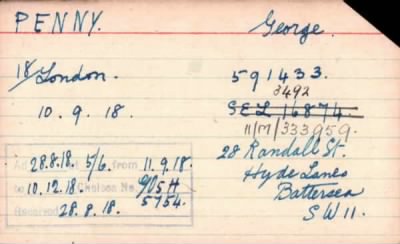 PENNY. George.
18/London. 591433.
3492
10. 9. 18. SEL 16874.
11/M/333959.
28.8.18. 5/6. from 11.9.18. 28 Randall St.
to 10.12.18. Chelsea No. Hyde Lanes
5754. Battersea
28. 8. 18. S W 11.